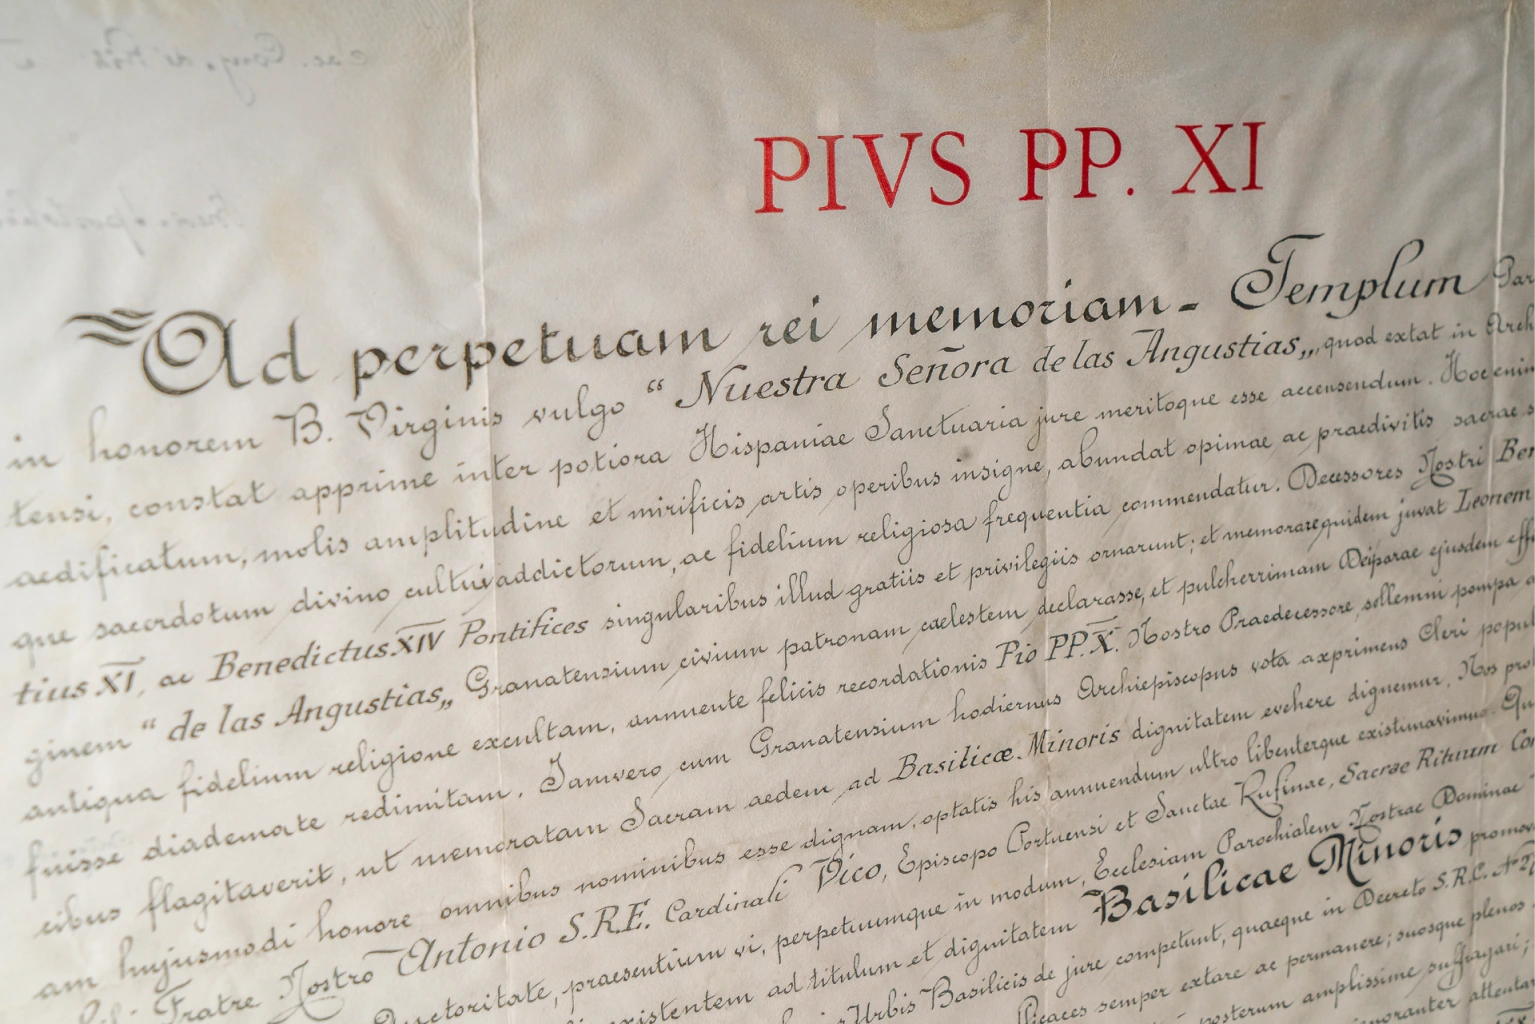 PIVS PP. XI
Ad perpetuam rei memoriam - Templum
in honorem B. Virginis vulgo “ Nuestra Señora de las Angustias„ quod extat in
tensi, constat apprime inter potiora Hispaniae Sanctuaria jure meritoque esse accensendum. Hoc enim
aedificatum, molis amplitudine et mirificis artis operibus insigne, abundat opimae ac praedivitis sacrae
que sacerdotum divino cultui addictorum, ac fidelium religiosa frequentia commendatur. Decessores Nostri Ben
tius XI, ac Benedictus XIV Pontifices singularibus illud gratiis et privilegiis ornarunt; et memorare quidem juvat Leonem
ginem “ de las Angustias„ Granatensium civium patronam caelestem declarasse, et pulcherrimam Deiparae ejusdem
antiqua fidelium religione excultam, annuente felicis recordationis Pio PP. X. Nostro Praedecessore, sollemni pompa
fuisse diademate redimitam. Jamvero cum Granatensium hodiernus Archiepiscopus vota axprimens Cleri
cibus flagitaverit, ut memoratam Sacram aedem ad Basilicæ Minoris dignitatem evehere dignemur, Nos
am hujusmodi honore omnibus nominibus esse dignam, optatis his annuendum ultro libenterque existimavimus.
Fratre Nostro Antonio S.R.E. Cardinali Vico, Episcopo Portuensi et Sanctae Rufinae, Sacrae Rituum
praesentium vi, perpetuumque in modum, Ecclesiam Parochialem Nostrae Dominae
existentem ad titulum et dignitatem Basilicae Minoris
Urbis Basilicis de jure competunt, quaeque in Decreto S.R.C. N 27
semper extare ac permanere; suosque plenos
posterum amplissime suffragari;